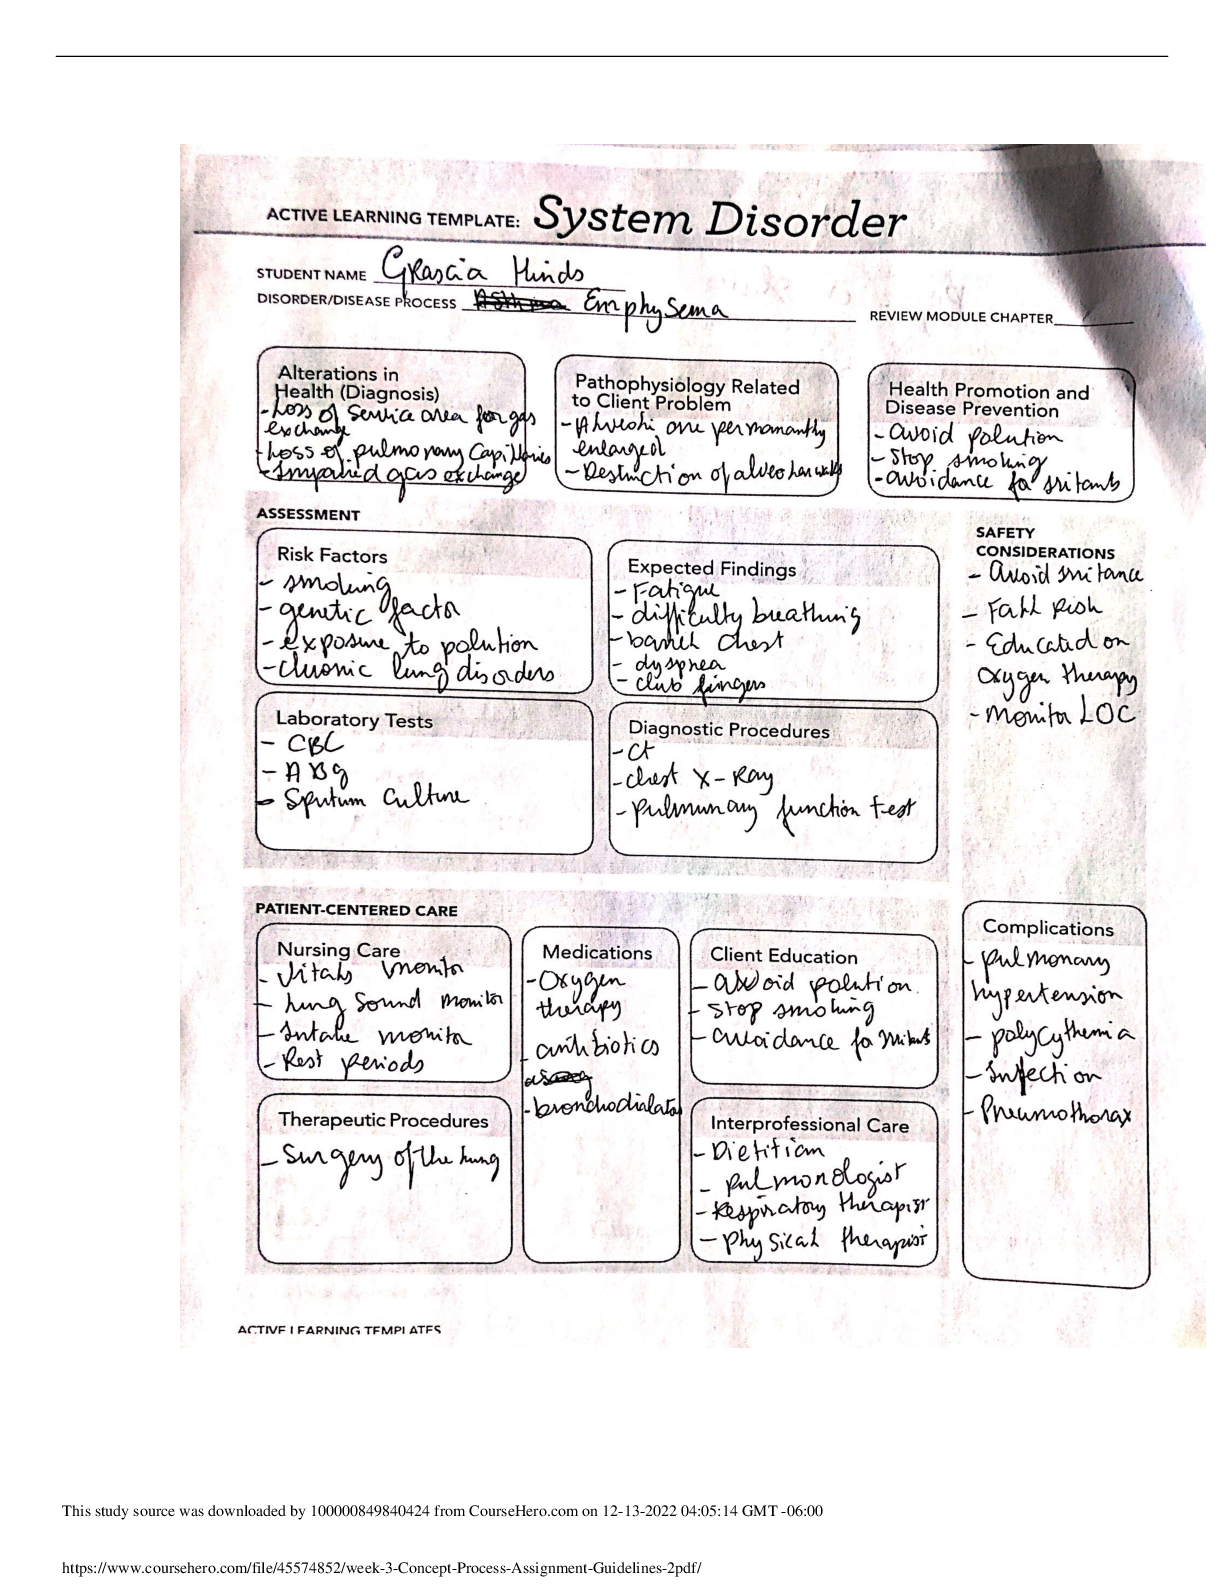 ACTIVE LEARNING TEMPLATE: System Disorder
STUDENT NAME Grascia Hinds
DISORDER/DISEASE PROCESS Emphysema
REVIEW MODULE CHAPTER
Alterations in
Health (Diagnosis)
- Loss of service area for gas
exchange
- Loss of pulmonary Capillaries
- Impaired gas exchange
Pathophysiology Related
to Client Problem
- Alveoli are permanantly
enlarged
- Destruction of alveolar walls
Health Promotion and
Disease Prevention
- avoid polution
- Stop smoking
- avoidance fo iritants
ASSESSMENT
Risk Factors
- smoking
- genetic factor
- exposure to polution
- chronic lung disorders
Expected Findings
- Fatigue
- difficulty breathing
- barrel chest
- dyspnea
- club fingers
SAFETY
CONSIDERATIONS
- Avoid
- Fall Risk
- Educated on
oxygen therapy
- Monitor LOC
Laboratory Tests
- CBC
- ABg
- Sputum Culture
Diagnostic Procedures
- Ct
- chest X-Ray
- pulmunary function test
PATIENT-CENTERED CARE
Nursing Care
- Vitals monitor
- lung sound monitor
- Intake monitor
- Rest periods
Medications
- Oxygen
therapy
- antibiotics
- bronchodialator
Client Education
- avoid polution.
- Stop smoking
- avoidance fo iritants
Complications
- pulmonary
hypertension
- polycythemia
- Infection
- Pneumothorax
Therapeutic Procedures
- Surgery of the lung
Interprofessional Care
- Dietitian
- pulmonologist
- Respiratory therapist
- physical therapist
ACTIVE LEARNING TEMPLATES
This study source was downloaded by 100000849840424 from CourseHero.com on 12-13-2022 04:05:14 GMT -06:00
https://www.coursehero.com/file/45574852/week-3-Concept-Process-Assignment-Guidelines-2pdf/